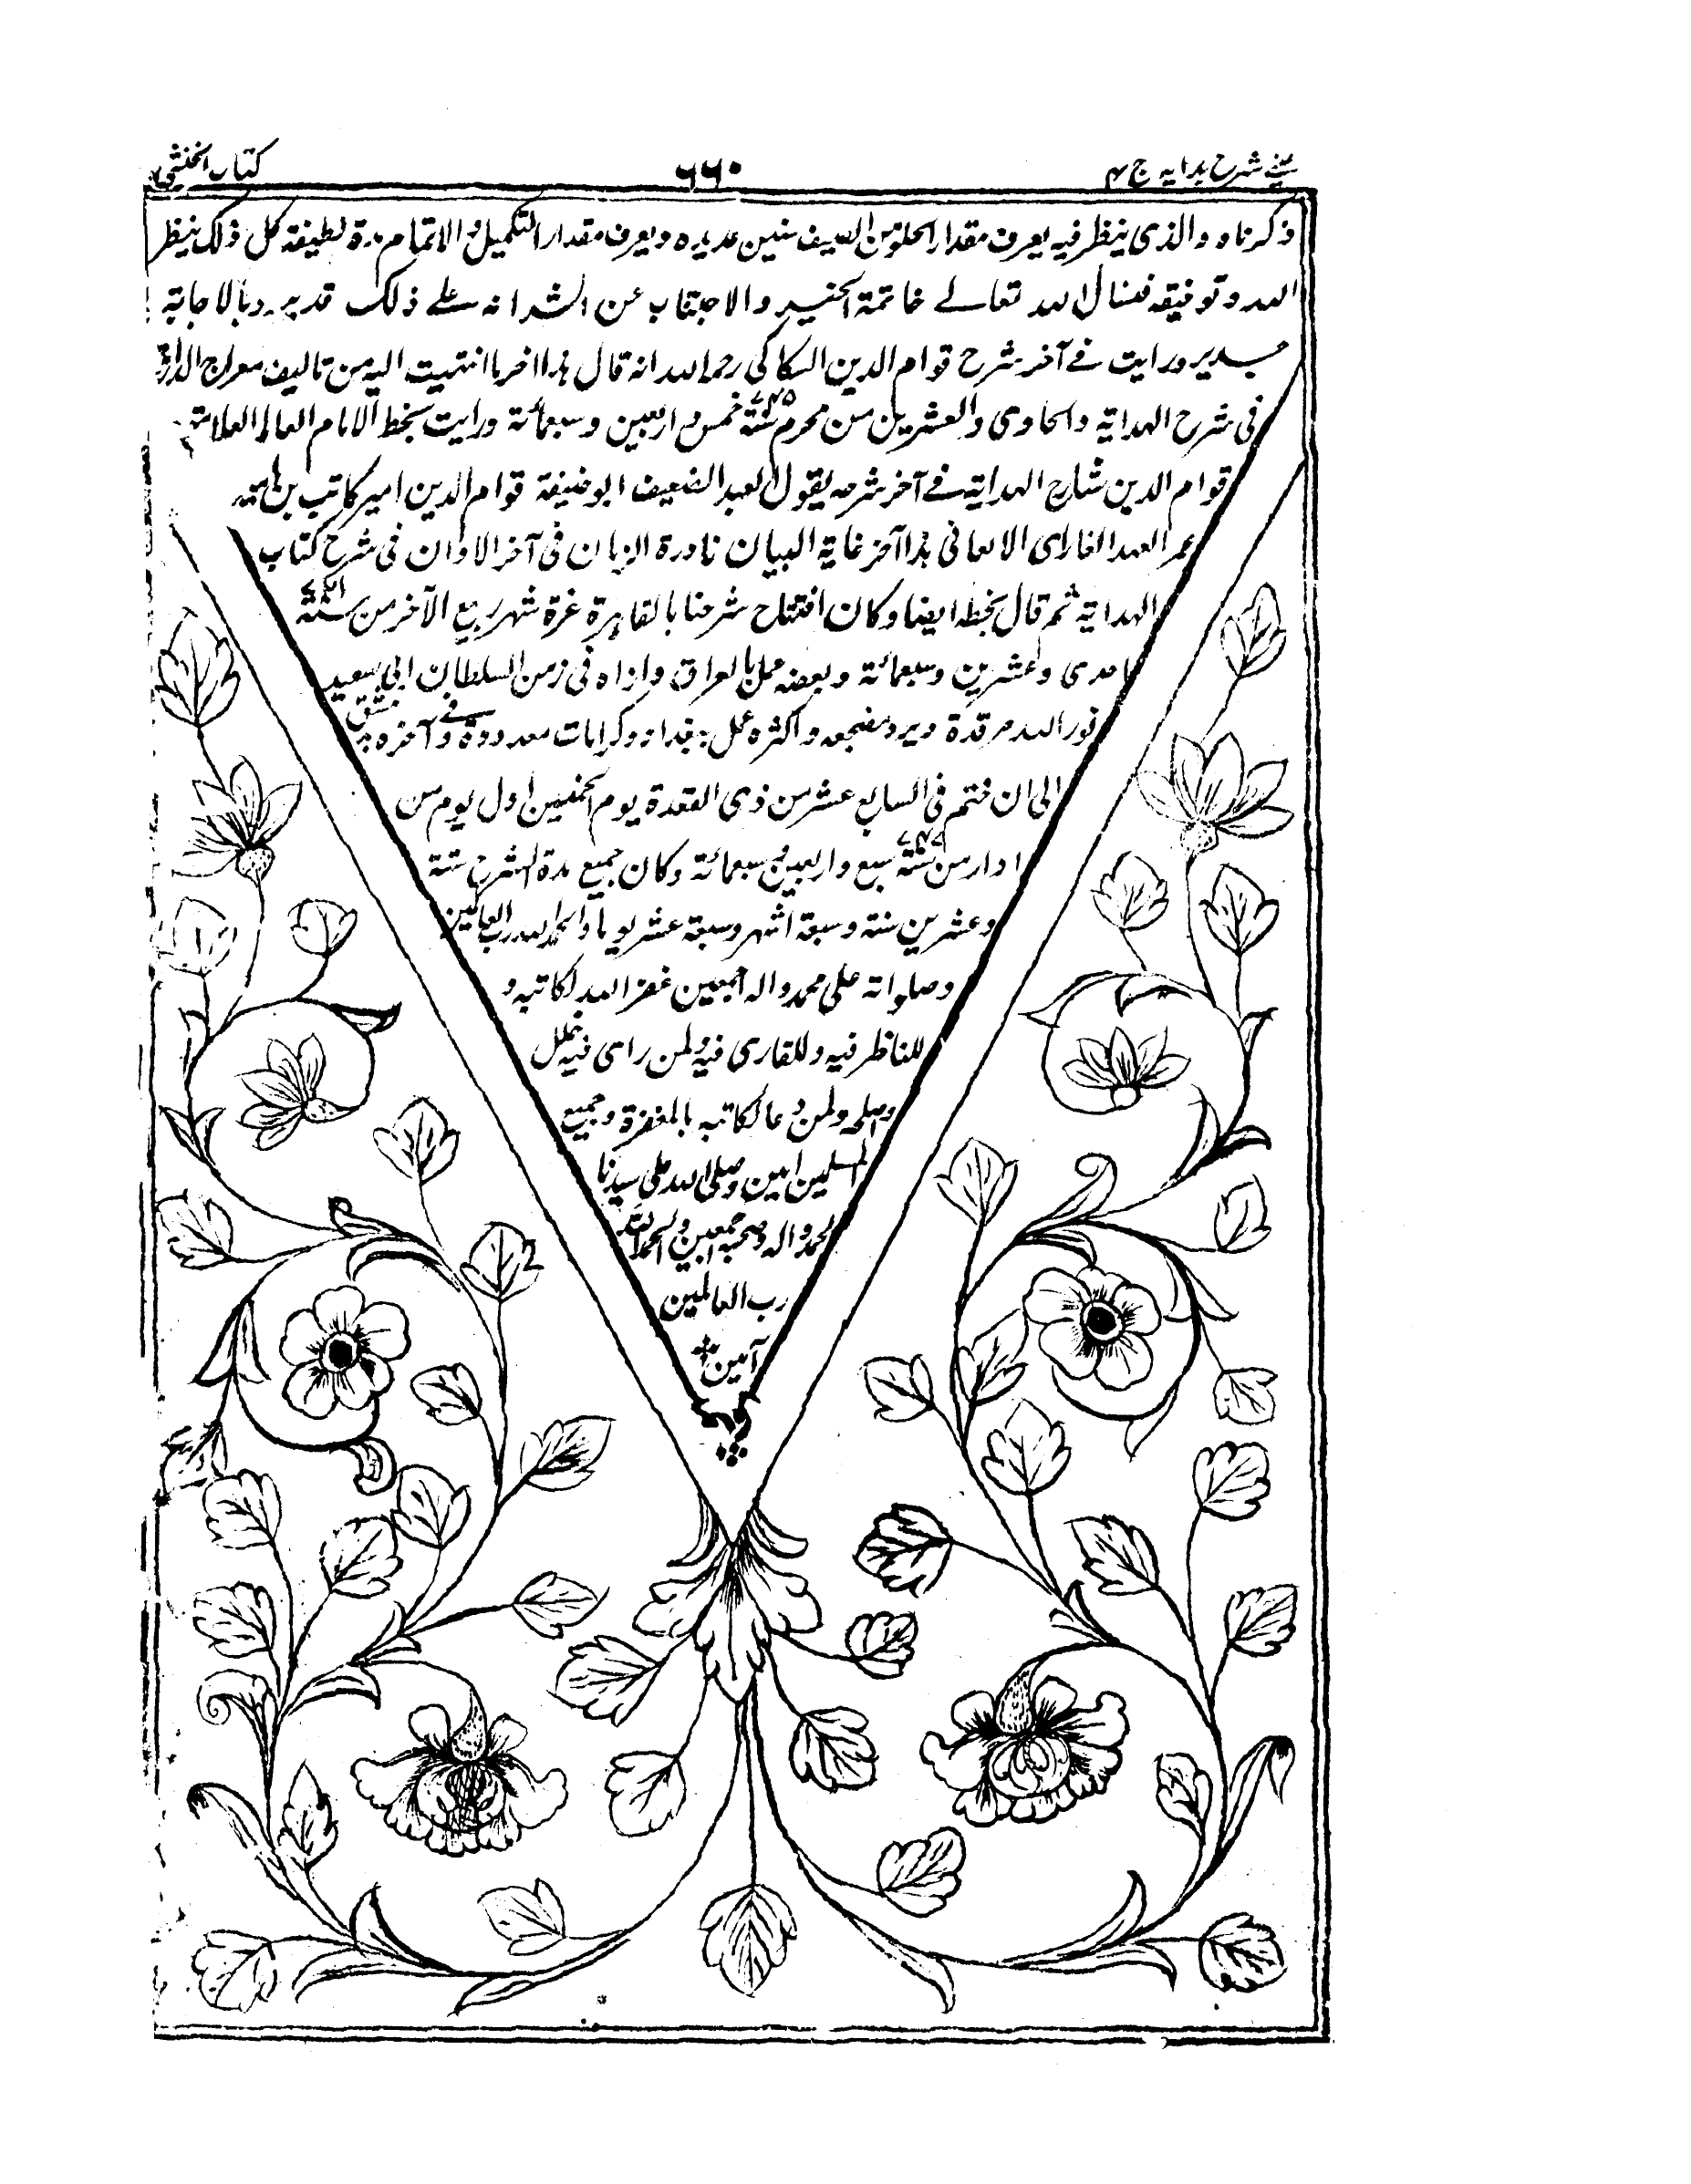 عينى شرح هدايه ج ٤
٦٦٠
كتاب الخنثى
ذكرناه والذى ينظر فيه يعرف مقدار الخلو من التصنيف سنين عديده ويعرف مقدار التكميل والاتمام مدة لطيفة كل ذلك ينظر
الله وتوفيقه فنسال الله تعالے خاتمة الخير والاجتناب عن الشر انه علے ذلك قدير وبالاجابة
جدير ورايت فے آخر شرح قوام الدين السكاكى رحمه الله انه قال هذا اخر ما انتهيت اليه من تاليف معراج الدراية
فى شرح الهداية والحادى والعشرين من محرم سنة ٧٤٥ خمس واربعين وسبعمائة ورايت بخط الامام العالم العلامة
قوام الدين شارح الهداية فے آخر شرحه يقول العبد الضعيف ابو حنيفة قوام الدين امير كاتب بن امير
عمر العميد الفارابى الاتقانى هذا آخر غاية البيان نادرة الزمان فى آخر الاوان فى شرح كتاب
الهداية ثم قال بخطه ايضا وكان افتتاح شرحنا بالقاهرة غرة شهر ربيع الآخر من سنة
احدى وعشرين وسبعمائة وبعضه عمل بالعراق واران فى زمن السلطان ابى سعيد
نور الله مرقده وبرد مضجعه واكثره عمل ببغداد وكرامات معدودة وآخره فے دمشق
الى ان ختم فى السابع عشر من ذى القعدة يوم الخميس اول يوم من
ادار من سنة ٧٤٧ سبع واربعين وسبعمائة وكان جميع مدة الشرح ستة
وعشرين سنة وسبعة اشهر وسبعة عشر يوما والحمد لله رب العالمين
وصلواته على محمد واله اجمعين غفر الله لكاتبه و
للناظر فيه وللقارى فيه ولمن راى فيه خلل
واصلحه ولمن دعا لكاتبه بالمغفرة وجميع
المسلمين امين وصلى الله على سيدنا
محمد واله وصحبه اجمعين والحمد لله
رب العالمين
آمين